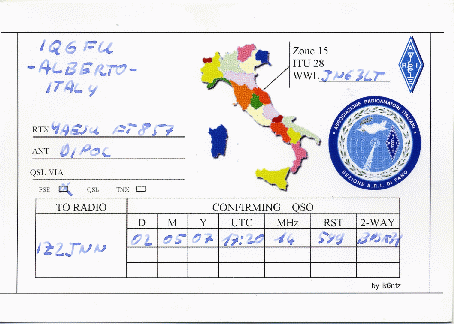 IQ6FU
-ALBERTO-
ITALY
Zone 15
ITU 28
WWL JN63LT
ARI
ASSOCIAZIONE RADIOAMATORI ITALIANI
SEZIONE A.R.I. DI FANO
RTX YAESU FT857
ANT DIPOL
QSL VIA
PSE QSL TNX
TO RADIO CONFIRMING QSO
D M Y UTC MHz RST 2-WAY
IZ2JNN 02 05 07 17:20 14 599